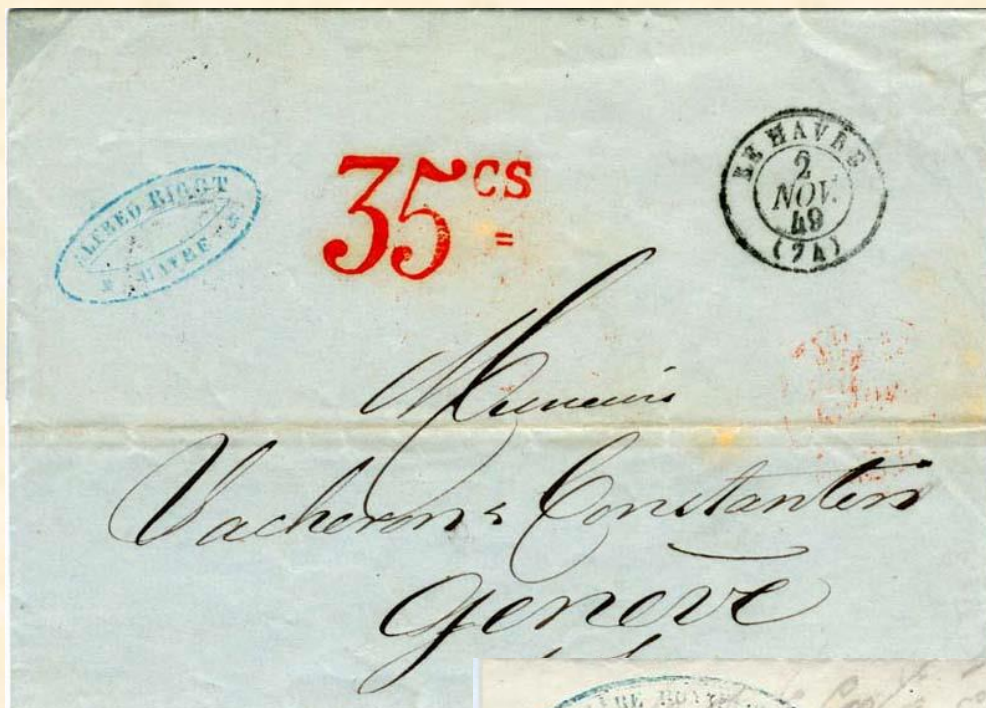 ALFRED BIGOT
HAVRE
35 CS
=
LE HAVRE
2
NOV.
49
(74)
Messieurs
Vacheron & Constantin
Genève